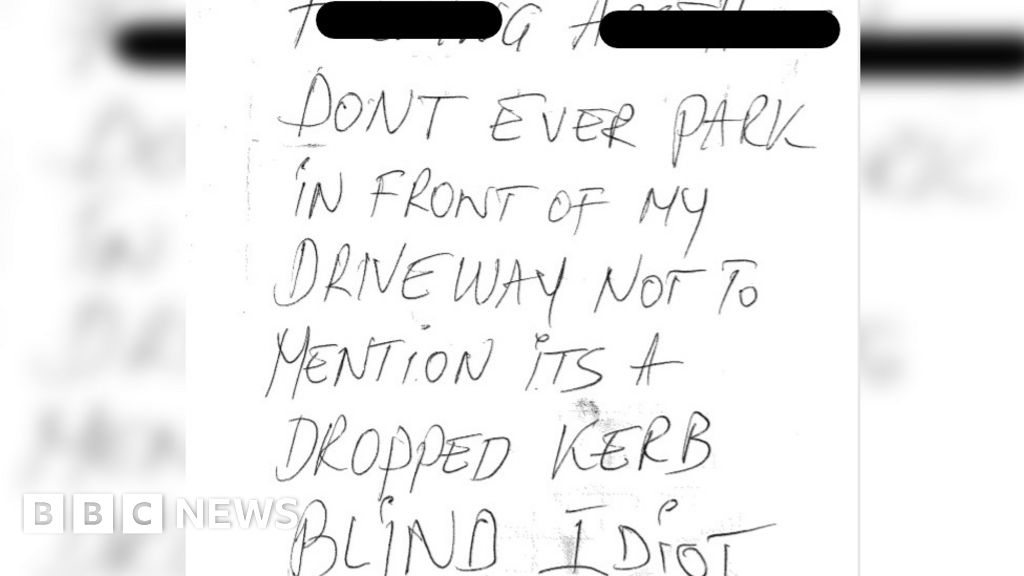 DONT EVER PARK
iN FRONT OF MY
DRIVEWAY NOT TO
MENTION iTS A
DROPPED KERB
BLiND IDiOT
BBC NEWS